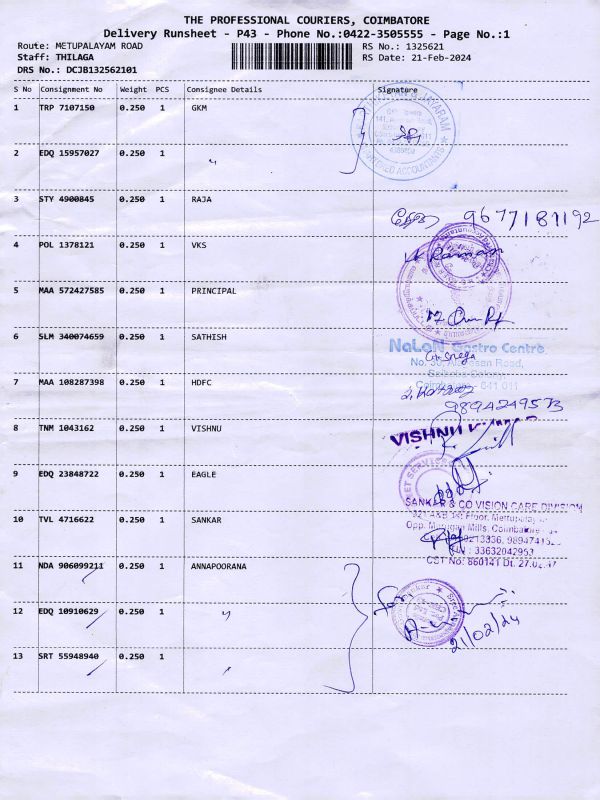 THE PROFESSIONAL COURIERS, COIMBATORE
Delivery Runsheet - P43 - Phone No.:0422-3505555 - Page No.:1
Route: METUPALAYAM ROAD RS No.: 1325621
Staff: THILAGA RS Date: 21-Feb-2024
DRS No.: DCJB132562101
S No Consignment No Weight PCS Consignee Details Signature
1 TRP 7107150 0.250 1 GKM
JAYARAM
ACCOUNTANTS
2 EDQ 15957027 0.250 1 "
3 STY 4900845 0.250 1 RAJA
9677181192
4 POL 1378121 0.250 1 VKS
5 MAA 572427585 0.250 1 PRINCIPAL
6 SLM 340074659 0.250 1 SATHISH
NaLaN Gastro Centre
Road,
641 011
7 MAA 108287398 0.250 1 HDFC
9894249573
8 TNM 1043162 0.250 1 VISHNU
VISHNU
9 EDQ 23848722 0.250 1 EAGLE
SANKAR & CO VISION CARE DIVISION
10 TVL 4716622 0.250 1 SANKAR
Floor,
Opp. Mills,
33632042953
CST No: 860141 Dt.
11 NDA 906099211 0.250 1 ANNAPOORANA
12 EDQ 10910629 0.250 1 "
21/02/24
13 SRT 55948940 0.250 1